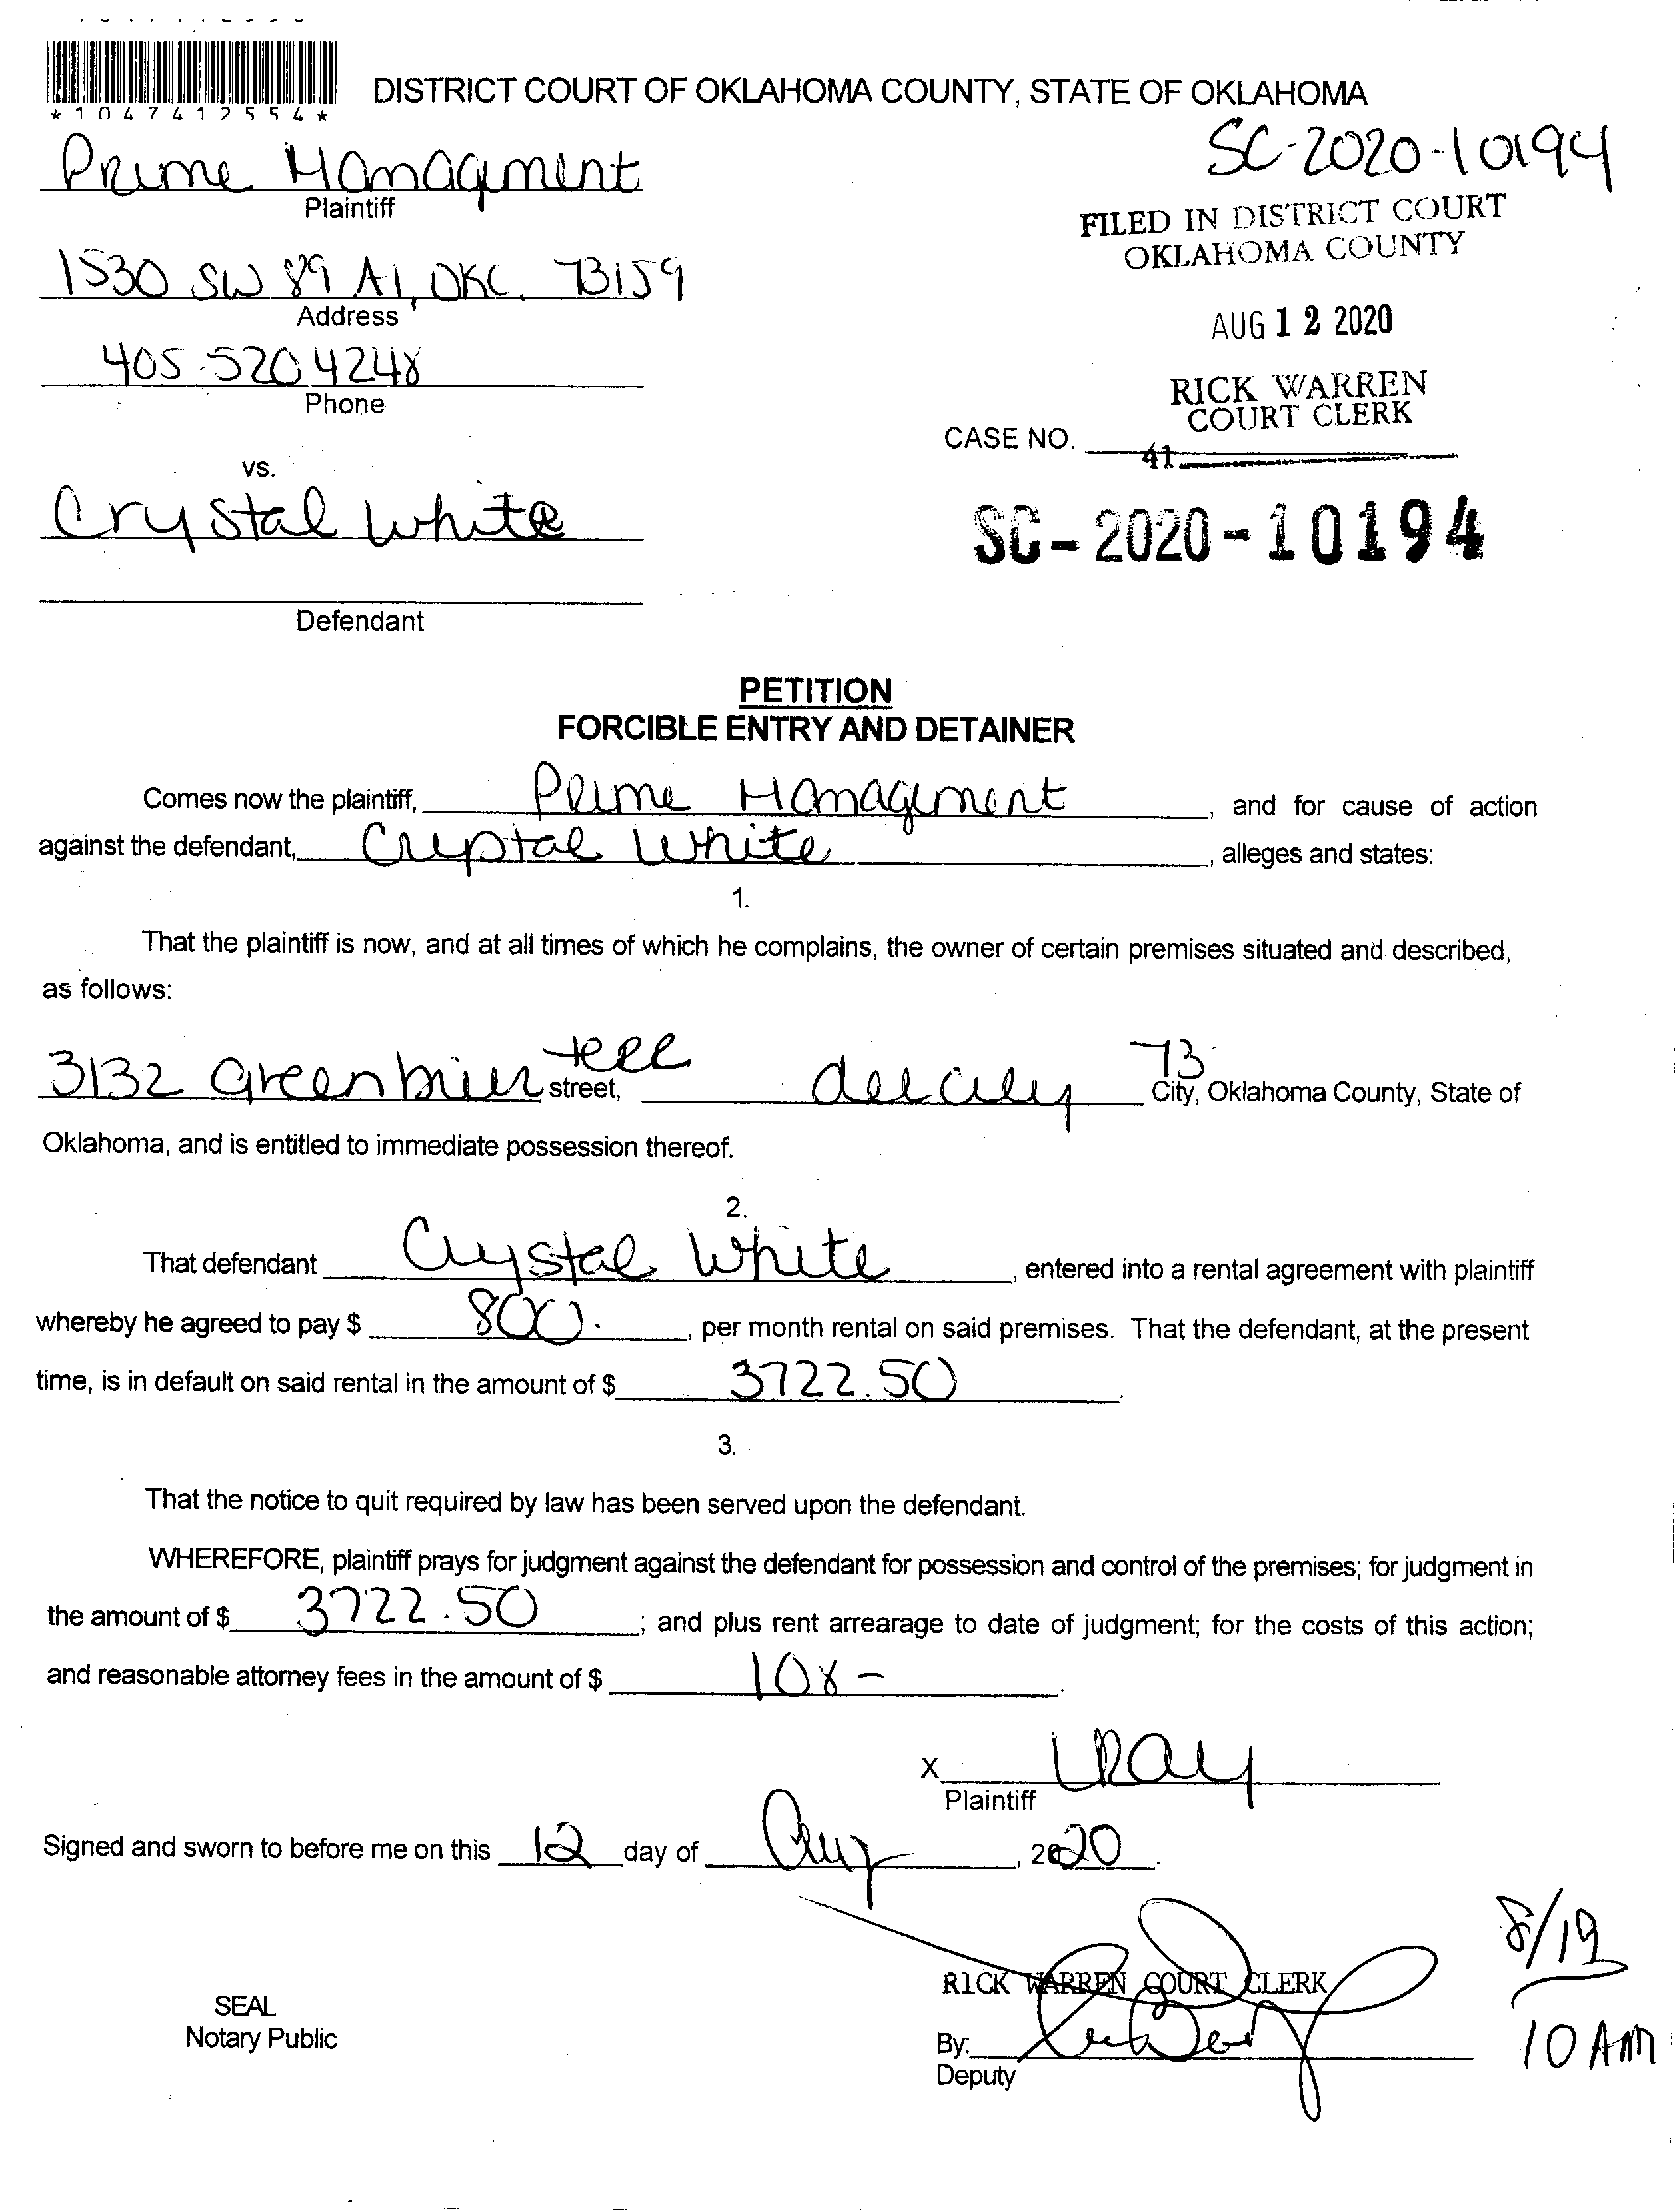 *1047412554*
DISTRICT COURT OF OKLAHOMA COUNTY, STATE OF OKLAHOMA
Prime Managment
Plaintiff
SC-2020-10194
FILED IN DISTRICT COURT
OKLAHOMA COUNTY
1530 SW 89 A1, OKC. 73159
Address
AUG 12 2020
405-5204248
Phone
RICK WARREN
COURT CLERK
CASE NO.
41
vs.
Crystal White
SC-2020-10194
Defendant
PETITION
FORCIBLE ENTRY AND DETAINER
Comes now the plaintiff, Prime Management, and for cause of action
against the defendant, Crystal White, alleges and states:
1.
That the plaintiff is now, and at all times of which he complains, the owner of certain premises situated and described,
as follows:
3132 Greenbrier terr street, del city 73 City, Oklahoma County, State of
Oklahoma, and is entitled to immediate possession thereof.
2.
That defendant Crystal White, entered into a rental agreement with plaintiff
whereby he agreed to pay $ 800., per month rental on said premises. That the defendant, at the present
time, is in default on said rental in the amount of $ 3722.50.
3.
That the notice to quit required by law has been served upon the defendant.
WHEREFORE, plaintiff prays for judgment against the defendant for possession and control of the premises; for judgment in
the amount of $ 3722.50; and plus rent arrearage to date of judgment; for the costs of this action;
and reasonable attorney fees in the amount of $ 108-.
X LRay
Plaintiff
Signed and sworn to before me on this 12 day of Aug, 2020.
8/19
10 AM
RICK WARREN COURT CLERK
SEAL
Notary Public
By:
Deputy